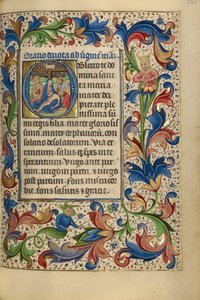 Oratio deuota ad uirginē mā
Obsecro te do
mina sanc
ta maria
mater dei
pietate ple
nissima sū
mi regis filia. mater glorio sis
sima. mater orphanorū. con
solatio desolatorum. Via er
rantium. salus et spes in te
sperantium. Virgo ante par
tum. uirgo in partu. et uirgo
post partum. Fons misericor
die. fons salutis et gracie.